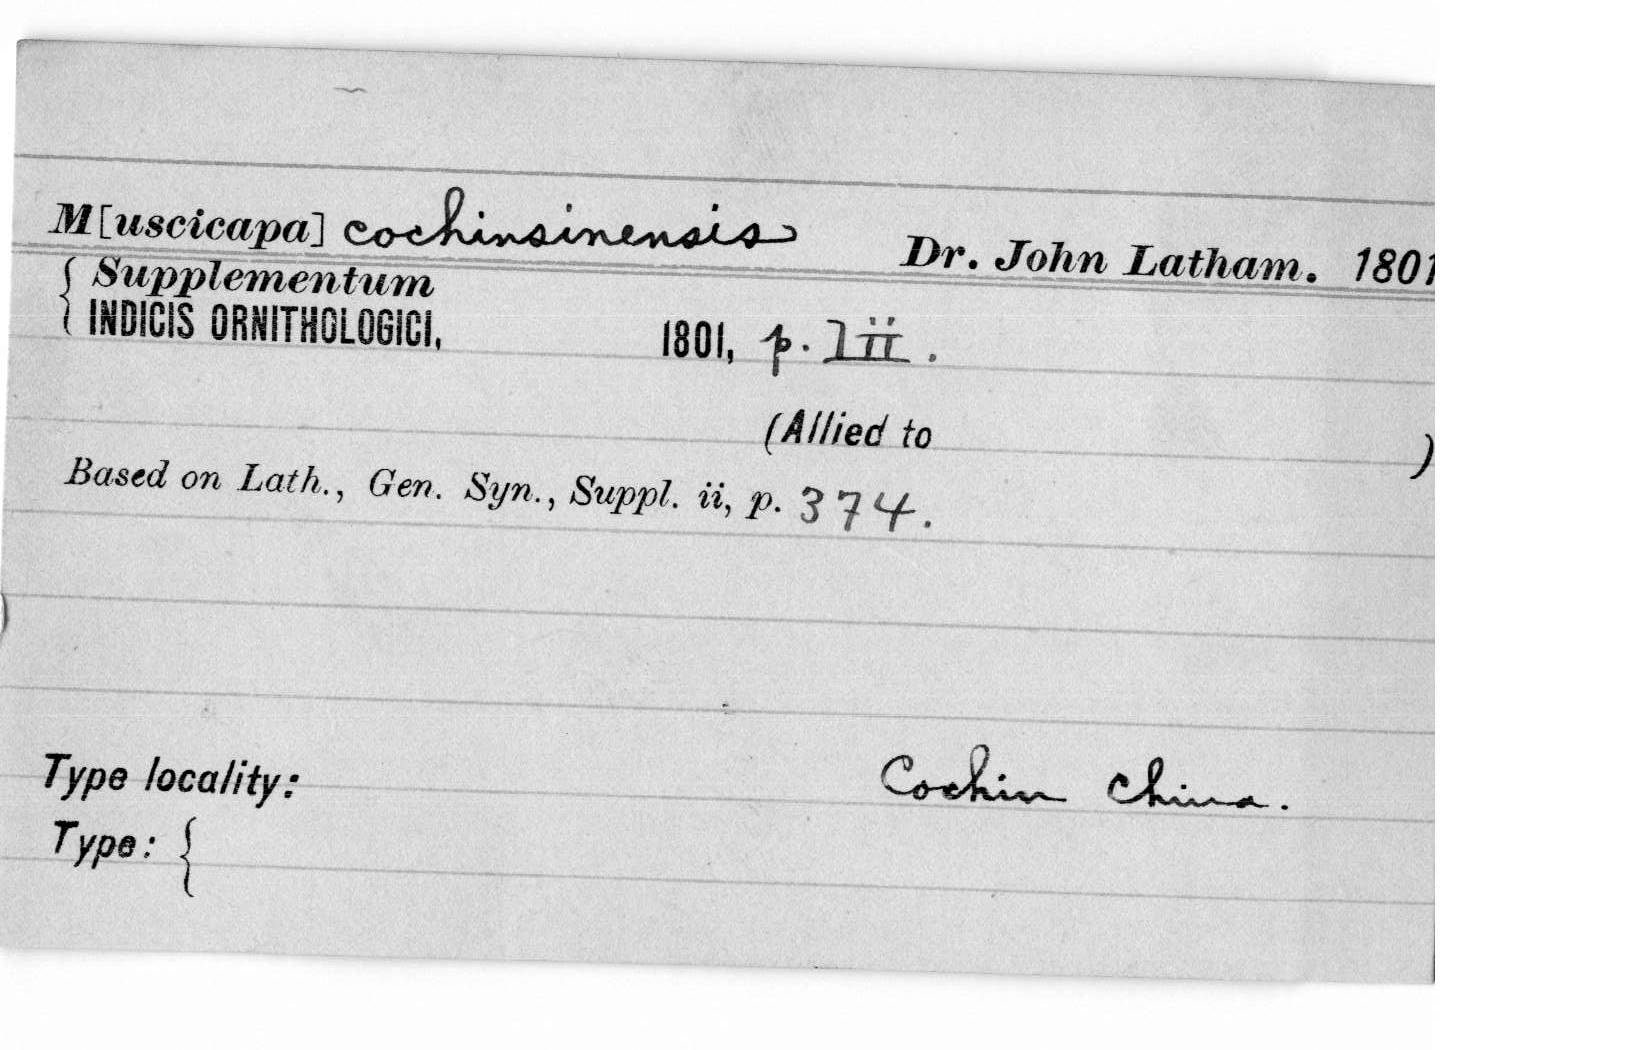 M[uscicapa] cochinsinensis Dr. John Latham. 1801
{ Supplementum
INDICIS ORNITHOLOGICI, 1801, p. lii.
(Allied to )
Based on Lath., Gen. Syn., Suppl. ii, p. 374.
Type locality: Cochin China.
Type: {